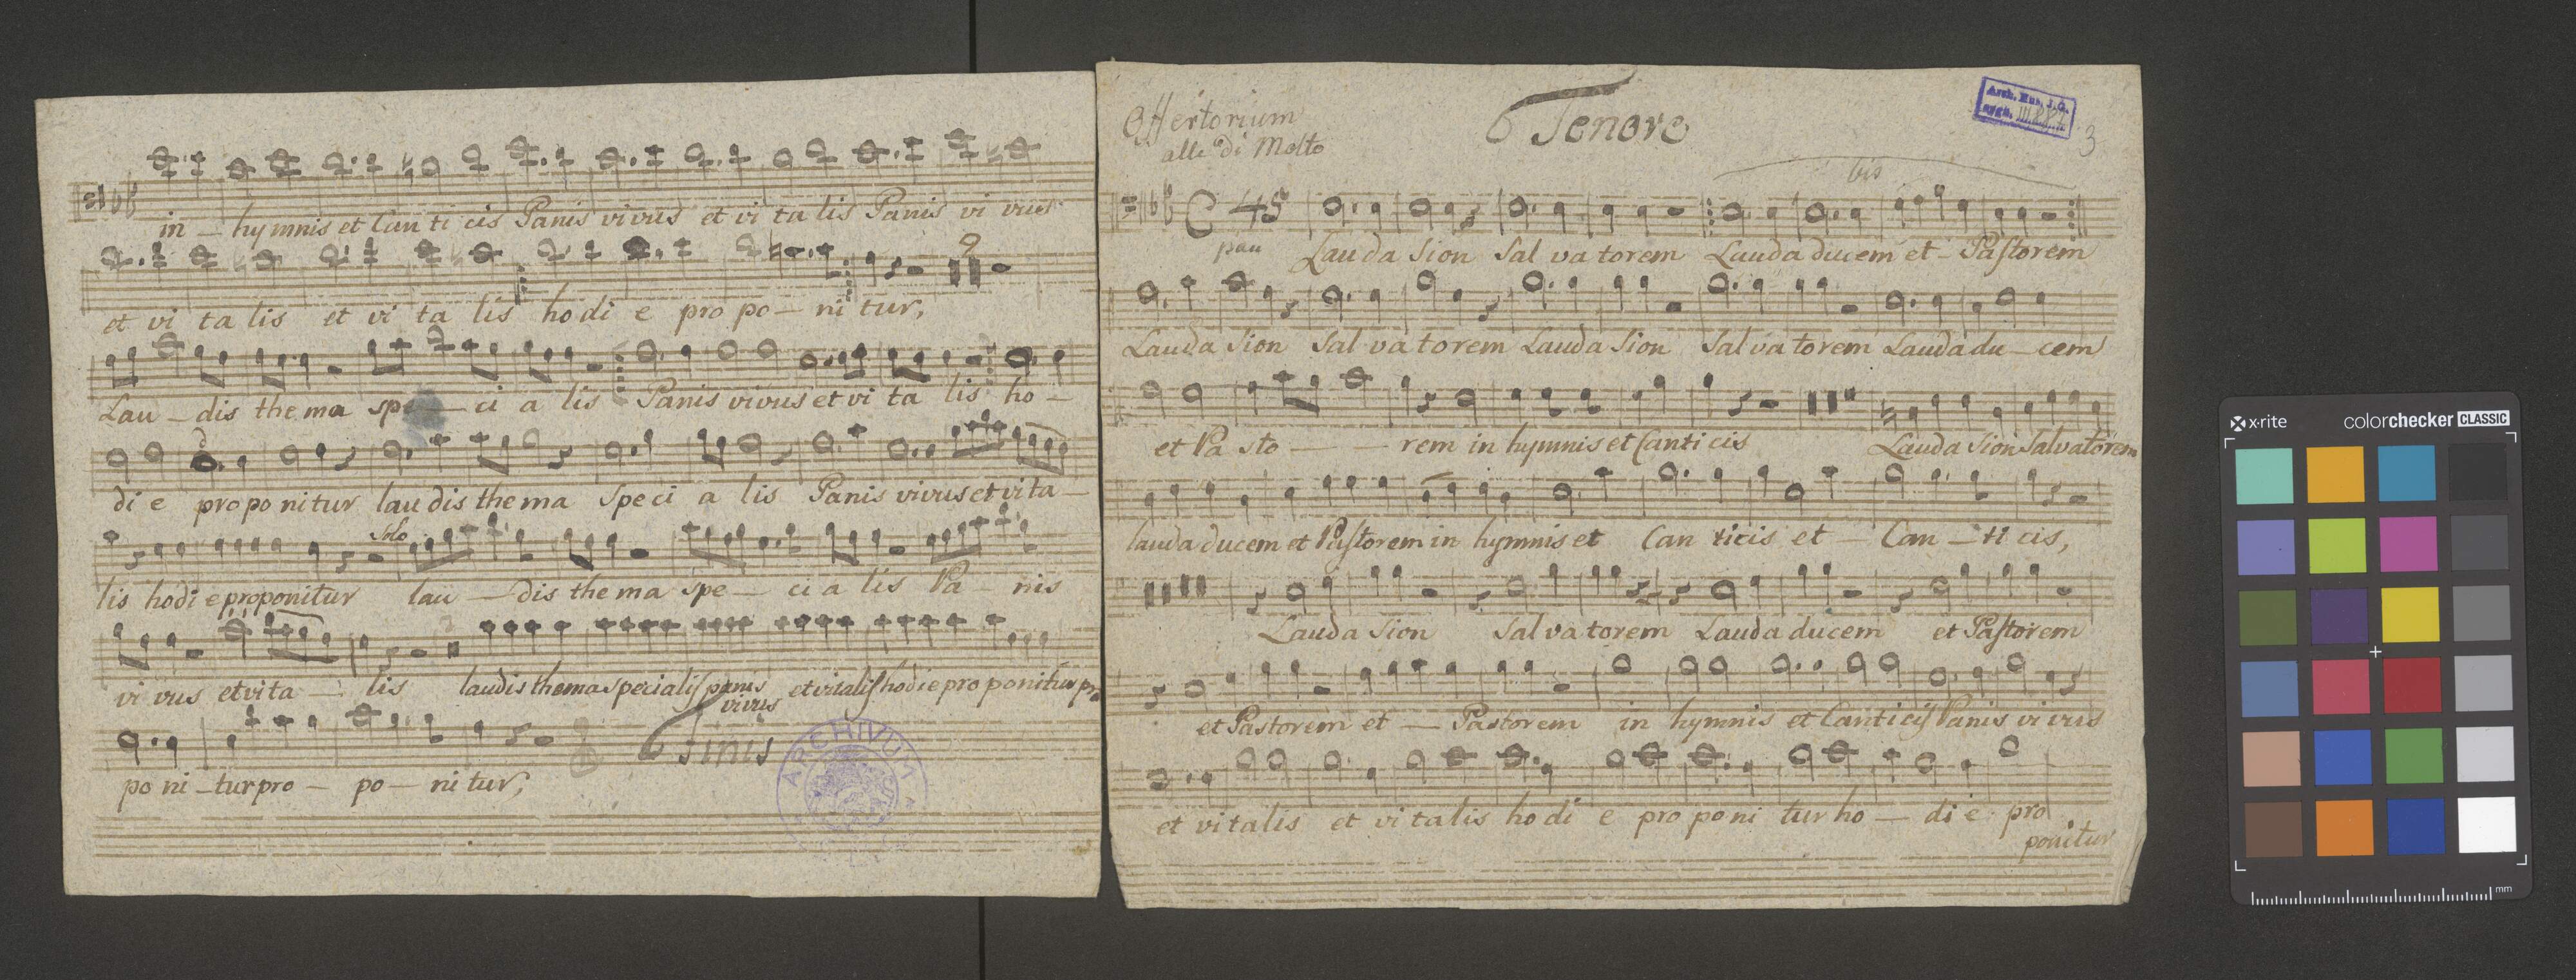 in - hymnis et Can ti cis Panis vivus et vi ta lis Panis vi vus
9
et vi ta lis et vi ta lis ho di e pro po - ni tur,
Lau - dis the ma spe - ci a lis Panis vivus et vi ta lis ho -
di e proponitur laudis thema speci a lis Panis vivus et vita -
Solo
lis hodie proponitur lau - dis thema spe - ci a lis Pa - nis
vi vus et vita - lis laudis thema specialis panis et vitalis hodie pro ponitur pro
vivus
Finis
po ni - tur pro - po - ni tur,
ARCHIVUM
Offertorium
alle di Molto
Tenore
Arch. Mus. J. G.
3
bis
C 45
pau Lauda Sion Sal va torem Lauda ducem et - Pastorem
Lauda Sion Sal va torem Lauda Sion Salva torem Lauda du - cem
et Pa sto - rem in hymnis et Canti cis Lauda Sion Salvatorem
lauda ducem et Pastorem in hymnis et Can ticis et - Can - ti cis,
Lauda Sion Sal va torem Lauda ducem et Pastorem
et Pastorem et - Pastorem in hymnis et Canticis Panis vi vus
et vitalis et vi talis ho di e pro po ni tur ho - di e pro
ponitur
x-rite
colorchecker CLASSIC
mm